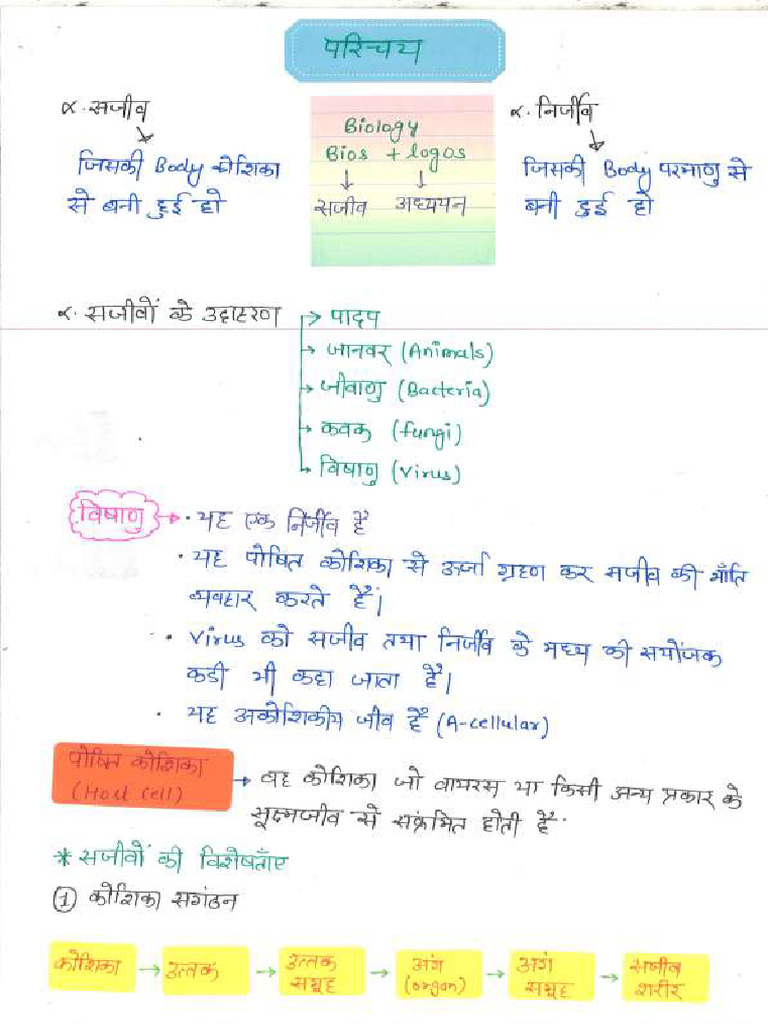 परिचय
α. सजीव
जिसकी Body कोशिका
से बनी हुई हो
Biology
Bios + logos
सजीव अध्ययन
α. निर्जीव
जिसकी Body परमाणु से
बनी हुई हो
α. सजीवों के उदाहरण
पादप
जानवर (Animals)
जीवाणु (Bacteria)
कवक (fungi)
विषाणु (Virus)
विषाणु
• यह एक निर्जीव है
• यह पोषित कोशिका से ऊर्जा ग्रहण कर सजीव की भाँति
व्यवहार करते हैं।
• Virus को सजीव तथा निर्जीव के मध्य की सयोंजक
कडी भी कहा जाता है।
• यह अकोशिकीय जीव है (A-cellular)
पोषित कोशिका
(Host cell)
वह कोशिका जो वायरस या किसी अन्य प्रकार के
सूक्ष्मजीव से संक्रमित होती है.
* सजीवों की विशेषताँए
① कोशिका सगंठन
कोशिका → उत्तक → उत्तक समूह → अंग (organ) → अंग समूह → सजीव शरीर